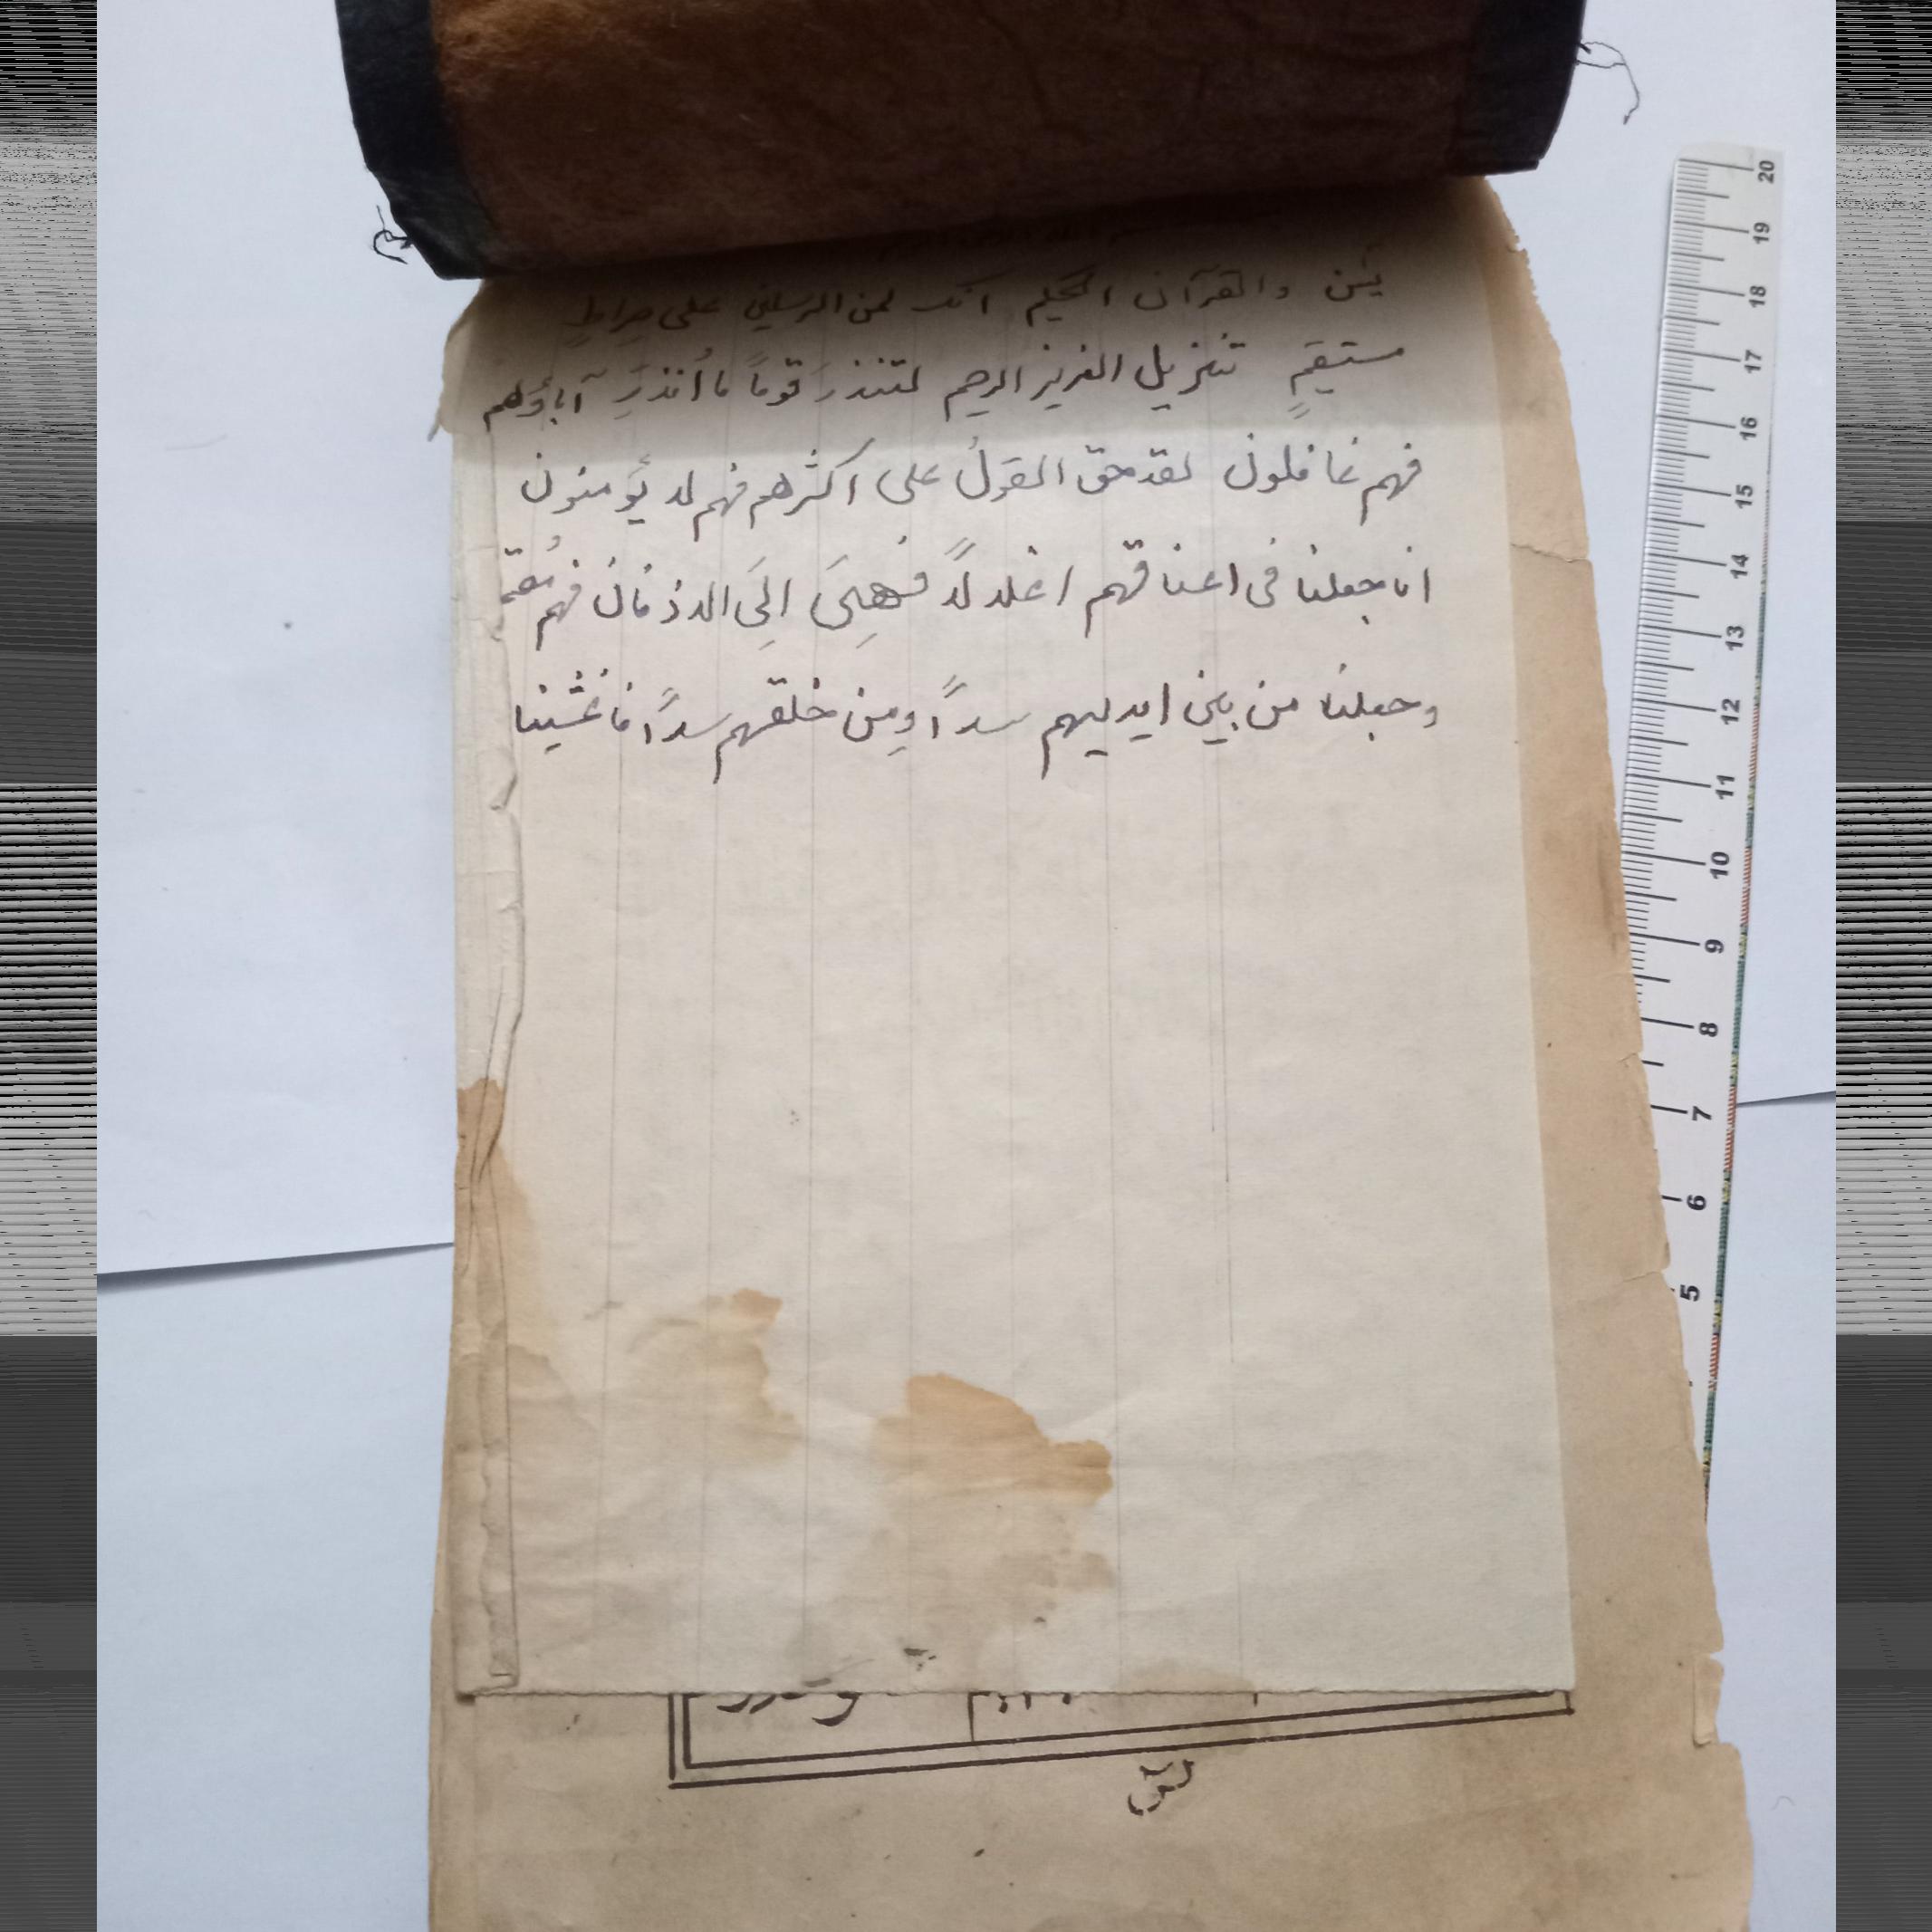 يٓسن والقرآن الحكيم انك لمن المرسلين على صِراطٍ
مستقيمٍ تنزيل العزيز الرحيم لتنذرَ قوماً ما أُنذرَ آباؤهم
فهم غافلون لقد حق القولُ على اكثرهم فهم لا يؤمنون
انا جعلنا فى اعناقهم اغلالاً فهِىَ الَى الاذقان فهم مُقمـ
وجعلنا من بين ايديهم سداً ومِن خلفهم سداً فاغشينا
20
19
18
17
16
15
14
13
12
11
10
9
8
7
6
5